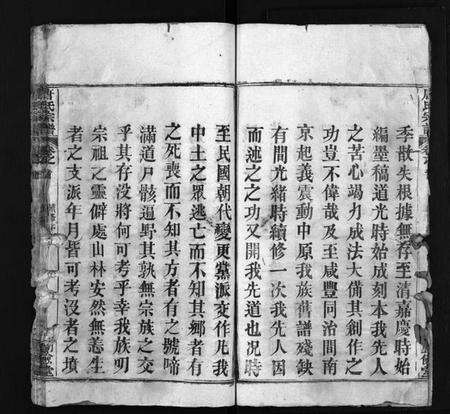 季散失根據無存至清嘉慶時始
編墨稿道光時始成刻本我先人
之苦心竭力成法大備其創作之
功豈不偉哉及至咸豐同治間南
京起義震動中原我族舊譜殘缺
有間光緒時續修一次我先人因
而述之之功又開我先道也况時
至民國朝代變更黨派交作凡我
中土之眾逃亡而不知其鄉者有
之死喪而不知其方者有之號啼
滿道尸骸遍野其孰無宗族之交
乎其存沒將何可考乎幸我族明
宗祖之靈僻處山林安然無恙生
者之支派年月皆可考沒者之墳
唐氏宗譜